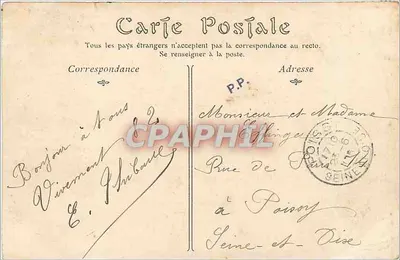 Carte Postale
Tous les pays étrangers n'acceptent pas la correspondance au recto.
Se renseigner à la poste.
Correspondance
Adresse
P.P.
Bonjour à tous
Vivement le 2
E. Thibault
Monsieur et Madame
Rue de Paris
à Poissy
Seine-et-Oise
CPAPHIL
SEINE